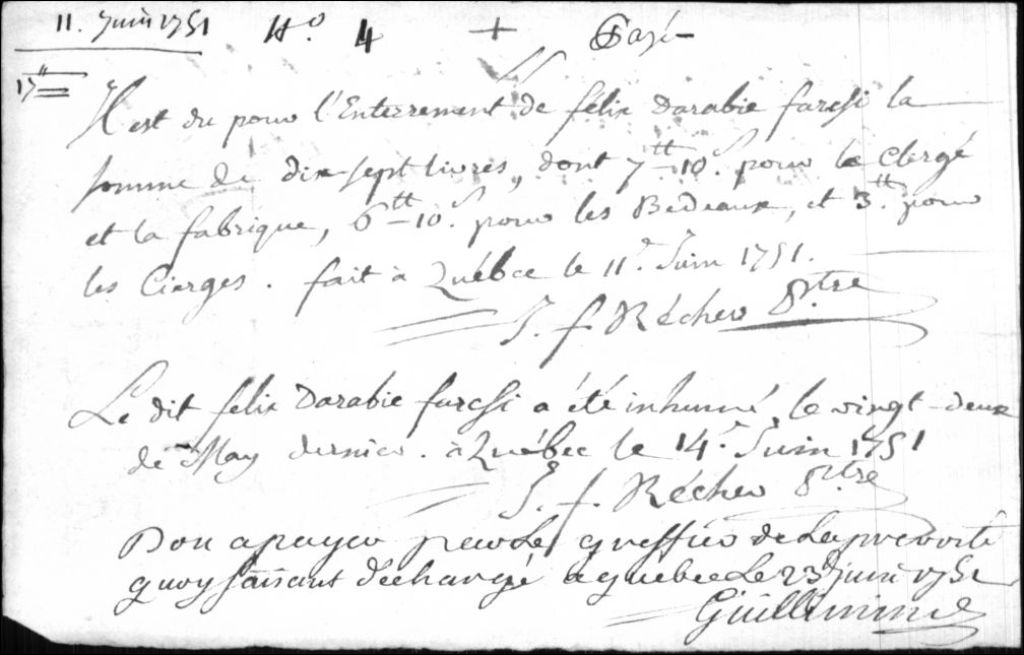 11. Juin 1751 No. 4 + Payé
17"
Il est du pour l'Enterrement de félix Darabie farchi la
somme de dix-sept livres, dont 7tt-10.s pour le Clergé
et la fabrique, 6tt-10.s pour les Bedeaux, et 3.tt pour
les Cierges. fait à Québec le 11.e Juin 1751.
J. f. Récher Ptre
Le dit félix Darabie farchi a été inhumé, le vingt-deux
de May dernier. à Québec le 14.e Juin 1751
J. f. Récher Ptre
Bon a payer par Le greffier de La prevosté
quoy faisant déchargé a quebec Le 23 juin 1751
Guillimin